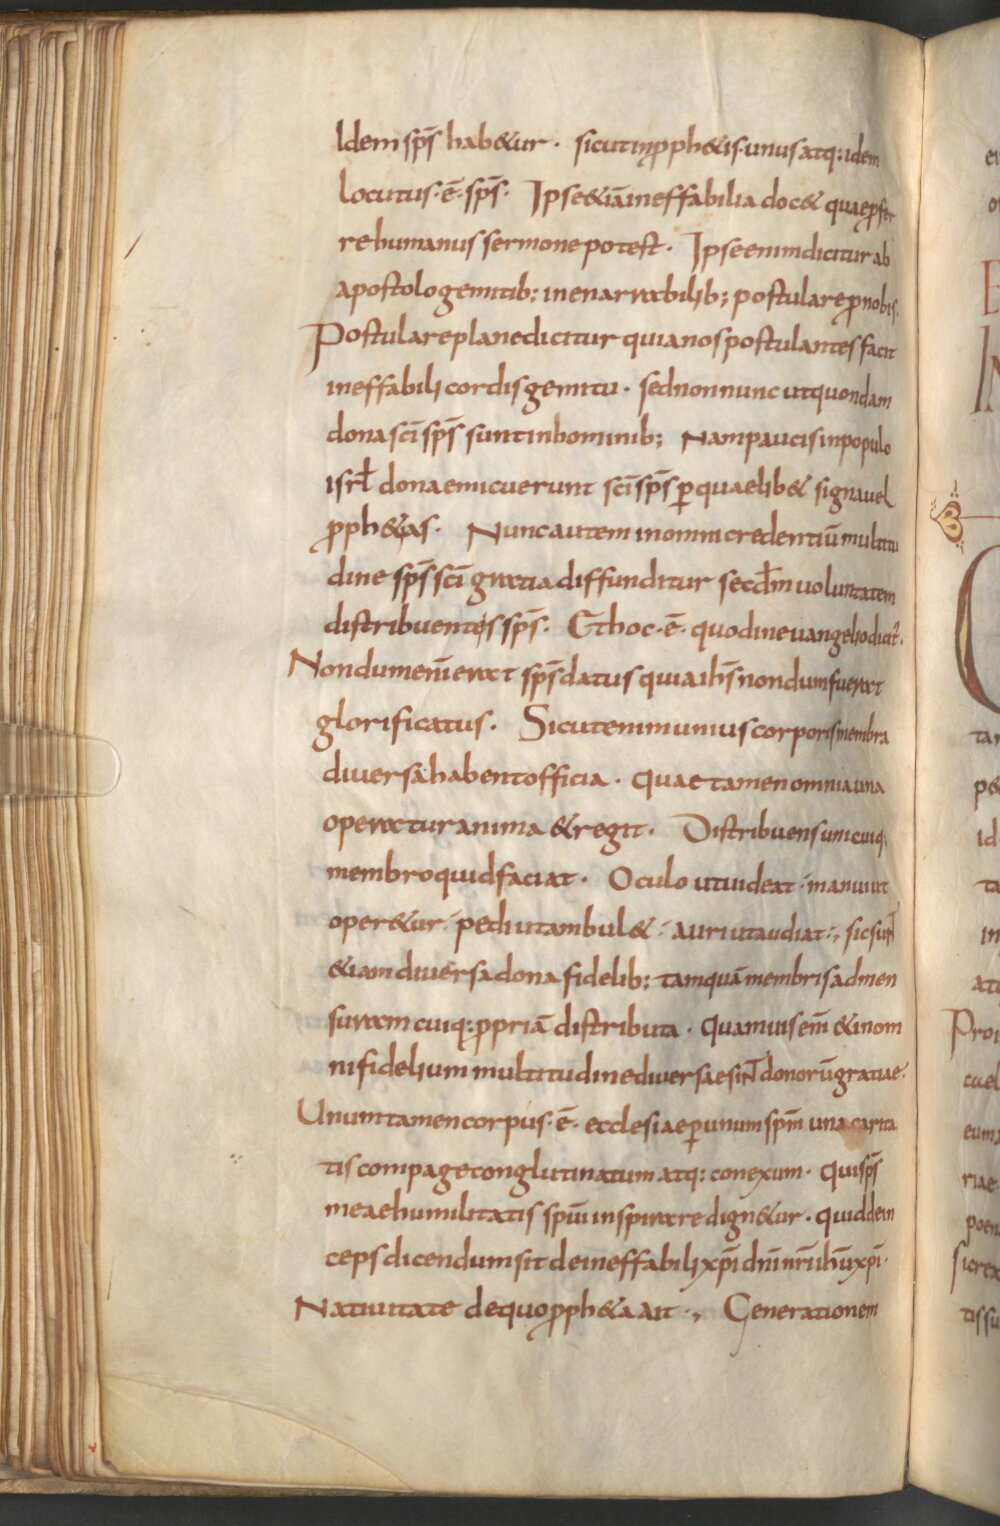 Idem sp̄s hab&ur · sicut in pph&is unus atq: idem
locutus · ē · sp̄s · Ipse &iā ineffabilia doc& quae pfer
re humanus sermone potest · Ipse enim dicitur ab
apostolo gemitib: inenarrabilib; postulare pro nobis.
Postulare plane dicitur quia nos postulantes facit
ineffabili cordis gemitu · sed non nunc ut quondam
dona sc̄i sp̄s sunt in hominib; Nam paucis in populo
isrł dona emicuerunt sc̄i sp̄s p quaelib& signa uel
pph&as · Nunc autem in omni credentiū multitu
dine sp̄s sc̄i gratia diffunditur secđm uoluntatem
distribuentes sp̄s · Et hoc · ē · quod in euangelio dicit̄ ·
Nondum enī erat sp̄s datus quia ih̄s nondum fuerat
glorificatus · Sicut enim unius corporis membra
diuersa habent officia · quae tamen omnia una
operatur anima & regit · Distribuens unicuiq;
membro quid faciat · Oculo ut uideat · manui ut
oper&ur · pedi ut ambul& · auri ut audiat ·, sic sunt
&iam diuersa dona fidelib: tamquā membris ad men
suram cuiq: ppriā distributa · quamuis em̄ & in om
ni fidelium multitudine diuersae sint donorū gratiae ·
Unum tamen corpus · ē · ecclesiae p unum sp̄m una carita
tis compage conglutinatum atq: conexum · qui sp̄s
meae humilitatis sp̄ui inspirare dign&ur · quid dein
ceps dicendum sit de ineffabili xp̄i dn̄i nr̄i ih̄u xp̄i ·
Natiuitate de quo pph&a ait ·, Generationem